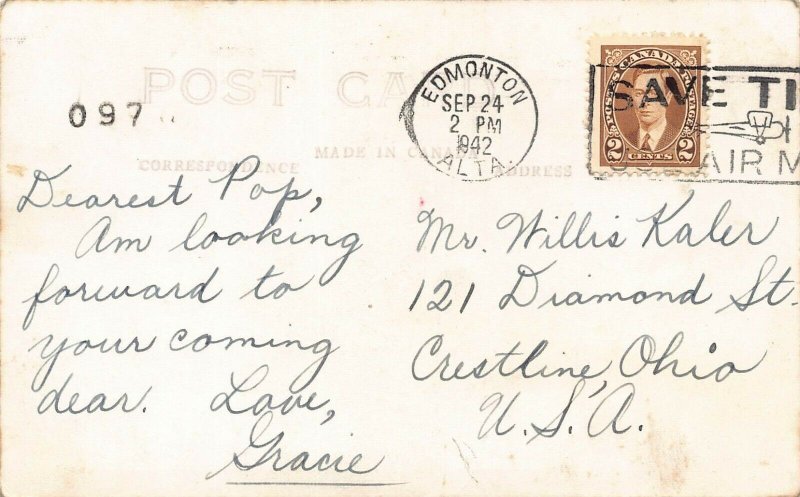 POST CARD
097
EDMONTON
SEP 24
2 PM
1942
ALTA.
POSTES CANADA POSTAGE
2 CENTS 2
SAVE TI
AIR M
MADE IN CANADA
CORRESPONDENCE
ADDRESS
Dearest Pop,
Am looking
forward to
your coming
dear. Love,
Gracie
Mr. Willis Kaler
121 Diamond St.
Crestline, Ohio
U.S.A.